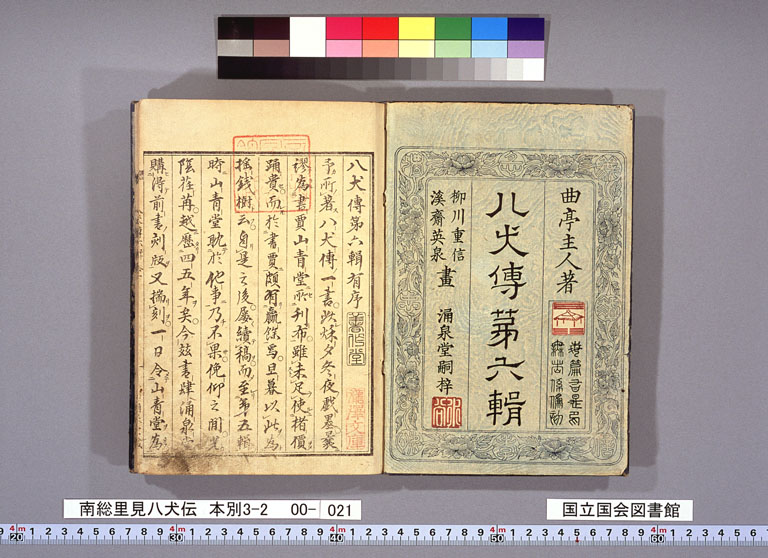 曲亭主人著
八犬傳第六輯
柳川重信
溪齋英泉
畫
涌泉堂嗣梓
八犬傳第六輯有序
予所著八犬傳一書
謬為書賈山青堂所刊布雖未足使楮價
踊貴而於書賈頗有贏餘焉且暮以此為
搖錢樹云自是之後屢續稿而至第五輯
時山青堂耽於他事乃不果俛仰之間光
陰荏苒越歷四五年矣今茲書肆涌泉
購得前書刻版又揣刻一日令山青堂為
南総里見八犬伝 本別3-2 00- 021
国立国会図書館